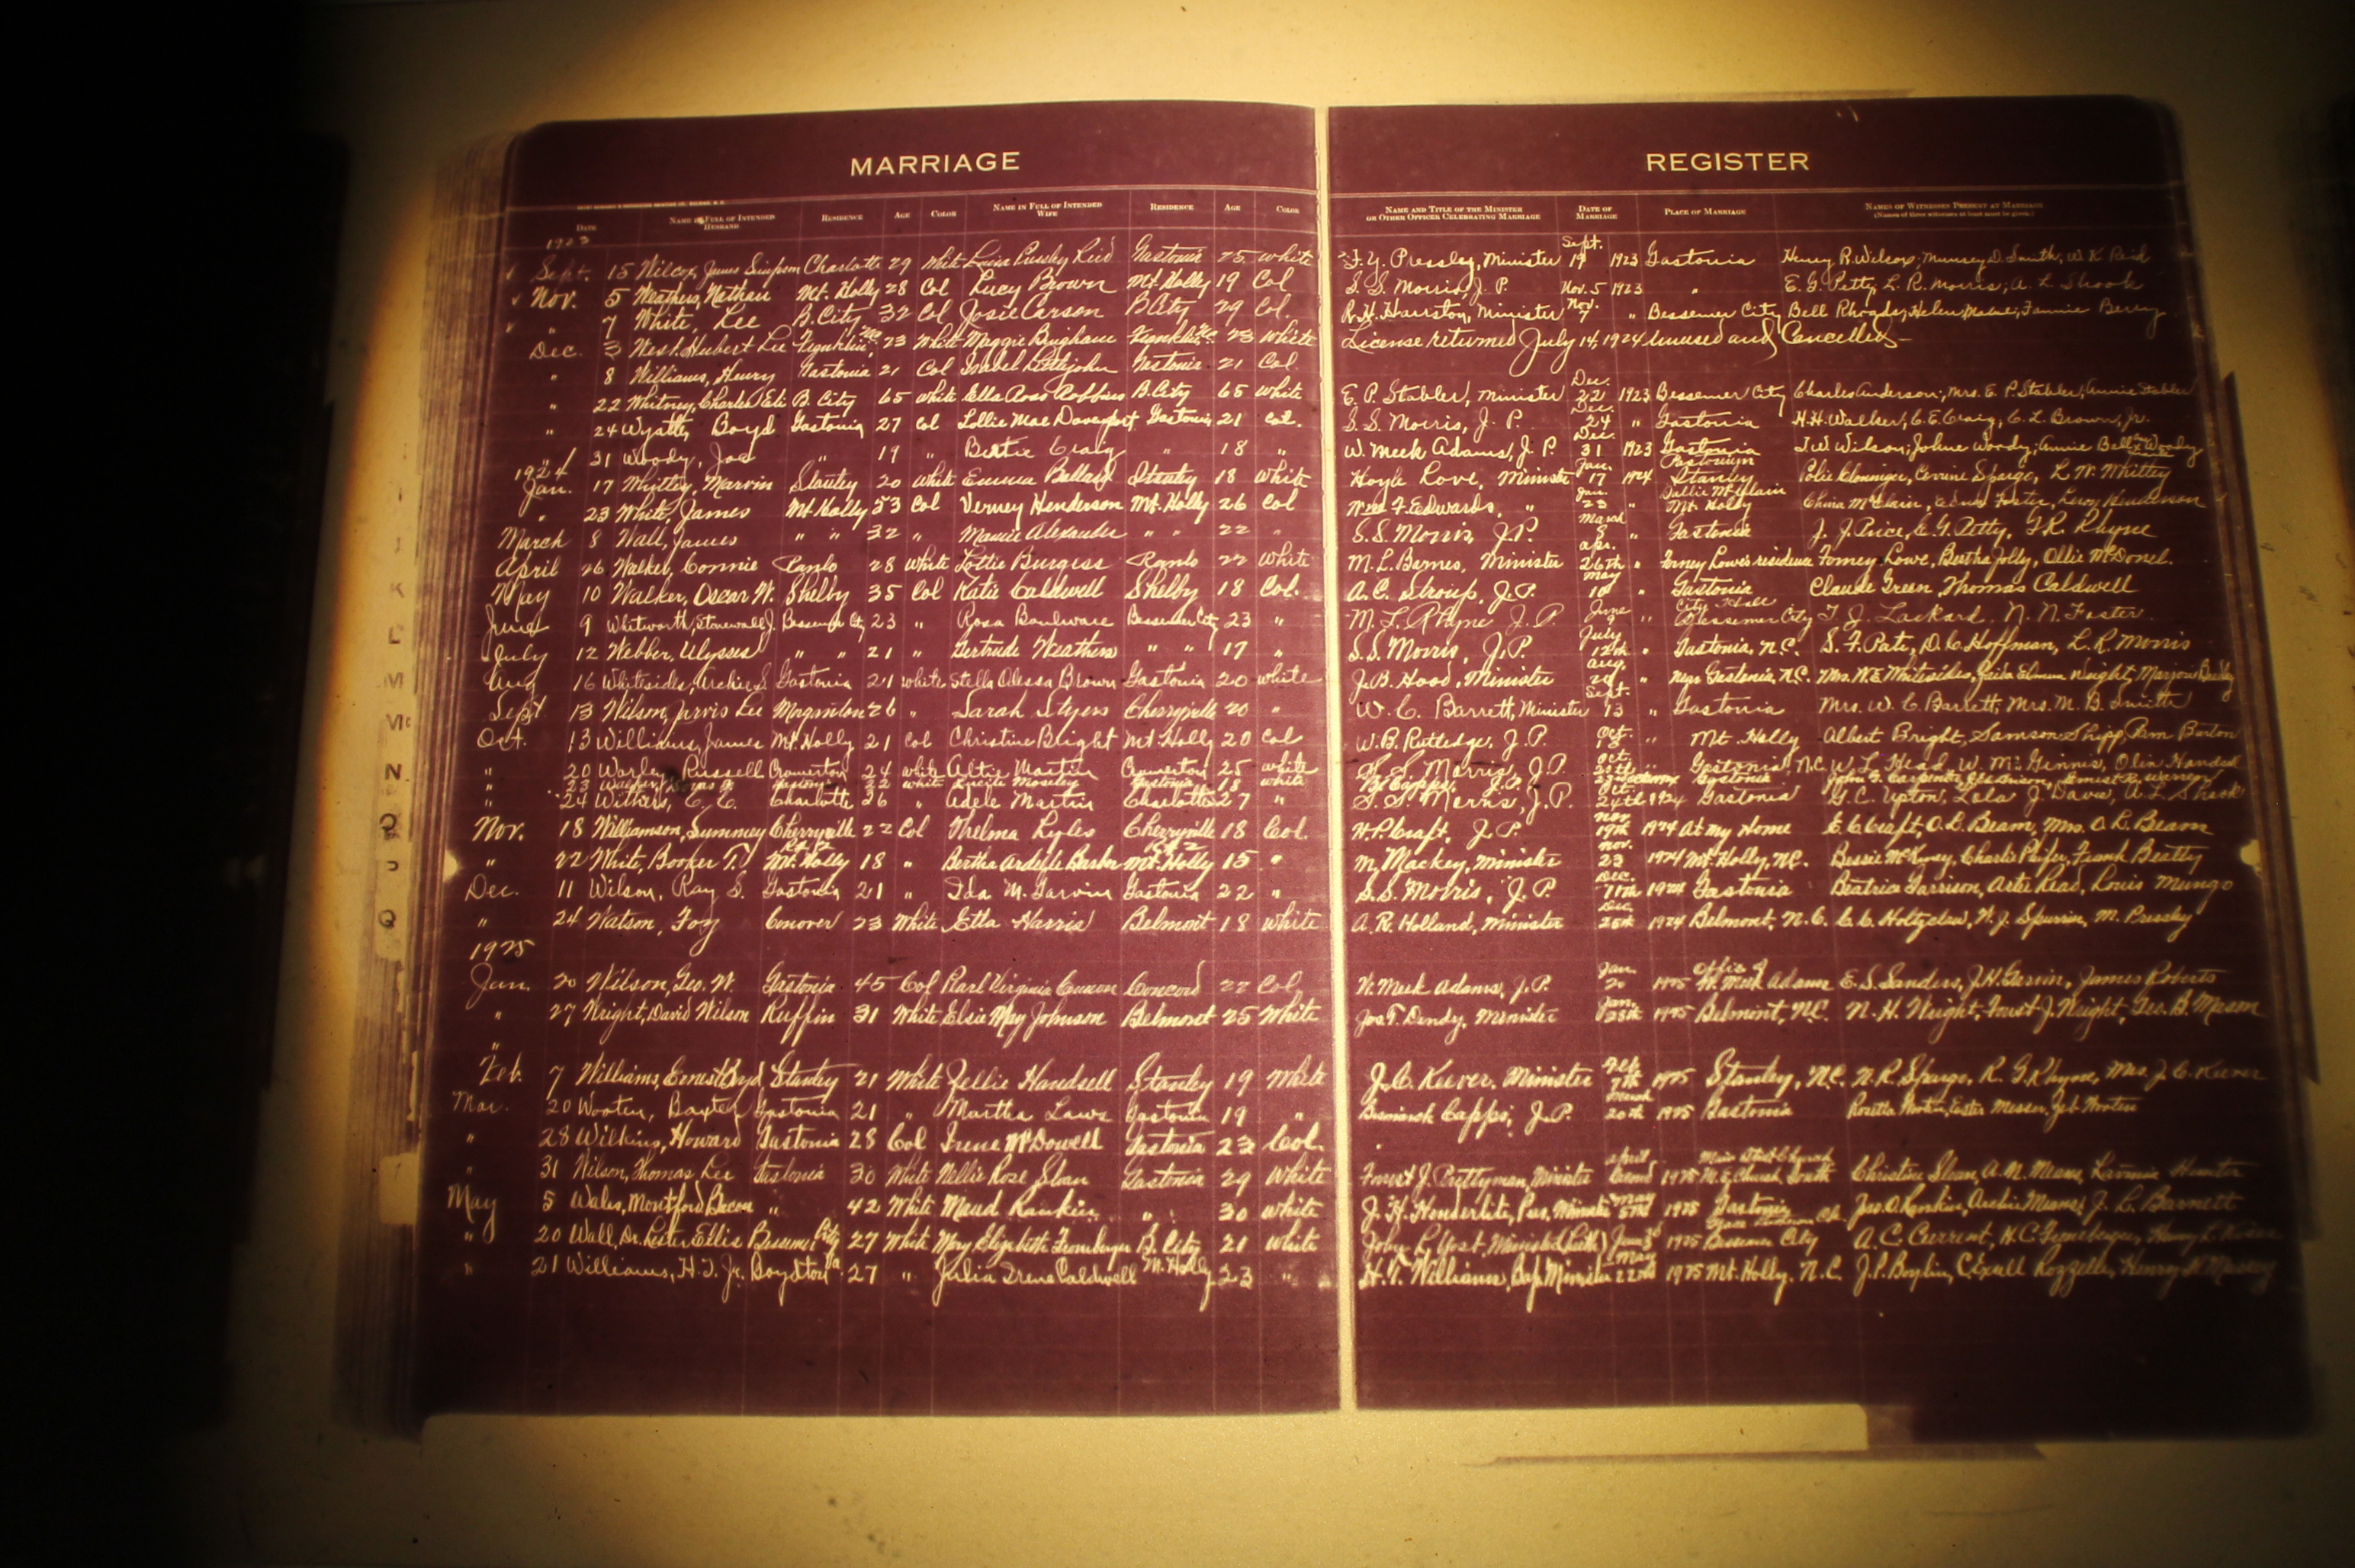 MARRIAGE REGISTER
DATE NAME IN FULL OF INTENDED HUSBAND RESIDENCE AGE COLOR NAME IN FULL OF INTENDED WIFE RESIDENCE AGE COLOR NAME AND TITLE OF THE MINISTER OR OTHER OFFICER CELEBRATING MARRIAGE DATE OF MARRIAGE PLACE OF MARRIAGE NAMES OF WITNESSES PRESENT AT MARRIAGE (Names of three witnesses at least must be given.)
1923
Sept. 15 Wilcox, James Simpson Charlotte 29 White Pressley Reid Gastonia 25 White F. Y. Pressley, Minister Sept. 19 1923 Gastonia Henry R. Wilcox; D. Smith, W. K. Reid
Nov. 5 Weathers, Nathan Mt. Holly 28 Col Lucy Brown Mt. Holly 19 Col S. S. Morris, J. P. Nov. 5 1923 " E. G. Petty, L. R. Morris; A. L. Shook
" 7 White, Lee B. City 32 Col Josie Carson B City 29 Col. R. H. Hairston, Minister Nov. 7 " Bessemer City Bell Rhodes; Helen Fannie Berry
Dec. 3 West, Hubert Lee 23 White Maggie Bingham 23 White License returned July 14, 1924 unused and Cancelled
" 8 Williams, Henry Gastonia 21 Col Isabel Littlejohn Gastonia 21 Col.
" 22 Whitney, Charles Eli B. City 65 White Ella Robbins B. City 65 White E. P. Stabler, Minister Dec. 22 1923 Bessemer City Charles Anderson; Mrs. E. P. Stabler; Annie Stabler
" 24 Wyatt, Boyd Gastonia 27 Col Lollie Mae Davenport Gastonia 21 Col. S. S. Morris, J. P. Dec. 24 " Gastonia H. H. Walker, C. E. Craig, C. L. Brown, Jr.
" 31 Woody, Joe " 19 " Beatie Craig " 18 " W. Meek Adams, J. P. Dec. 31 1923 Gastonia J. W. Wilson; Johnie Woody; Annie Bell Woody
1924
Jan. 17 Whitley, Marvin Stanley 20 White Emma Ballard Stanley 18 White Hoyle Love, Minister Jan. 17 1924 Stanley Polie Cloninger, Corrine Spargo, L. W. Whitley
" 23 White, James Mt Holly 53 Col Verney Henderson Mt. Holly 26 Col Wm F. Edwards, " Jan. 23 " Sallie McClain Mt. Holly China McClain, Edna Foster, Leroy Henderson
March 8 Wall, James " " 32 " Mamie Alexander " " 22 " S. S. Morris, J. P. March 8 " Gastonia J. J. Price, E. G. Petty, F. R. Rhyne
April 26 Walker, Connie Ranlo 28 White Lottie Burgess Ranlo 22 White M. L. Barnes, Minister Apr. 26th " Forney Lowe's residence Forney Lowe, Bertha Jolly, Ollie McDonel.
May 10 Walker, Oscar W. Shelby 35 Col Katie Caldwell Shelby 18 Col. A. C. Stroup, J. P. May 10 " Gastonia Claude Green, Thomas Caldwell
June 9 Whitworth, Stonewall J. Bessemer City 23 " Rosa Boulware Bessemer City 23 " M. L. Rhyne J. P. June 9 " City Hall Bessemer City T. J. Lackard, N. N. Foster
July 12 Webber, Ulysses " " 21 " Gertrude Weathers " " 17 " S. S. Morris, J. P. July 12th " Gastonia, N.C. S. F. Pate, D. C. Hoffman, L. R. Morris
Aug 16 Whitesides, Archie S. Gastonia 21 White Stella Odessa Brown Gastonia 20 White J. B. Hood, Minister Aug. " near Gastonia, N.C. Mrs. W. E. Whitesides, Wright,
Sept. 13 Wilson, Jarvis Lee Morganton 26 " Sarah Styers Cherryville 20 " W. C. Barrett, Minister Sept. 13 " Gastonia Mrs. W. C. Barrett, Mrs. M. B. Smith
Oct. 13 Williams, James Mt. Holly 21 Col Christine Bright Mt. Holly 20 Col W. B. Rutledge, J. P. Oct. 13 " Mt. Holly Albert Bright, Samson Shipp, Burton
" 20 Worley, Russell Cramerton 24 White Altie Martin Cramerton 25 White S. S. Morris, J. P. Oct 20th " Gastonia, N.C. W. L. Head, W. McGinnis, Olin
" 23 Gastonia 22 White Lucile Moseley Gastonia 18 White B. Capps, J. P. 23 Gastonia John F. Carpenter, Ernest R. Warren
" 24 Withers, C. C. Charlotte 36 " Adele Martin Charlotte 27 " S. S. Morris, J. P. Oct. 24th 1924 Gastonia G. C. Upton, Lola J. Davis, A. L. Shook
Nov. 18 Williamson, Summey Cherryville 22 Col Thelma Lyles Cherryville 18 Col. H. P. Craft, J. P. Nov 19th 1924 At my Home E. C. Craft, O. L. Beam, Mrs. O. L. Beam
" 22 White, Booker T. Mt. Holly 18 " Bertha Barber Mt. Holly 15 " M. Mackey, Minister Nov. 23 1924 Mt. Holly, N.C. Bessie McKinney, Charlie Phifer, Frank Beatty
Dec. 11 Wilson, Ray S. Gastonia 21 " Ida M. Garvin Gastonia 22 " S. S. Morris, J. P. Dec. 11th 1924 Gastonia Beatrice Garrison, Artie Read, Louis Mungo
" 24 Watson, Foy Conover 23 White Etta Harris Belmont 18 White A. R. Holland, Minister Dec. 25th 1924 Belmont, N. C. C. C. Holtzclaw, W. J. Spurrier, M. Pressley
1925
Jan. 20 Wilson, Geo. W. Gastonia 45 Col Pearl Virginia Concord 22 Col W. Meek Adams, J. P. Jan 20 1925 Office of W. Meek Adams E. S. Sanders, J. H. Garvin, James Roberts
" 27 Wright, David Wilson Ruffin 31 White Elsie May Johnson Belmont 25 White Jos. T. Dendy, Minister Jan. 28th 1925 Belmont, N.C. N. H. Wright, J. Wright, Geo. B. Mason
"
Feb. 7 Williams, Ernest Boyd Stanley 21 White Zellie Handsell Stanley 19 White J. C. Keever, Minister Feb 7th 1925 Stanley, N.C. N. R. Spargo, R. G. Rhyne, Mrs. J. C. Keever
Mar. 20 Wooten, Baxter Gastonia 21 " Martha Laws Gastonia 19 " Bismarck Capps, J. P. March 20th 1925 Gastonia Rosetta Easter Messer, Wooten
" 28 Wilkins, Howard Gastonia 28 Col Irene McDowell Gastonia 23 Col.
" 31 Wilson, Thomas Lee Gastonia 30 White Nellie Rose Sloan Gastonia 29 White Forrest J. Prettyman, Minister April 1925 Main Street Church M. E. Church South Christine Sloan, A. N. Means, Hunter
May 5 Wales, Montford Bacon " 42 White Maud Rankin " 30 White J. H. Henderlite, Pres. Minister May 5th 1925 Gastonia Jas. A. Rankin, Means, J. L. Barnett
" 20 Wall, Dr. Lester Ellis Bessemer City 27 White Mary Elizabeth Froneberger B. City 21 White John L. Yost, Minister (Luth) June 3d 1925 Bessemer City A. C. Current, H. C. Froneberger, Henry L. Kiser
" 21 Williams, H. T. Jr. Boydton Va. 27 " Julia Irene Caldwell Mt. Holly 23 " H. T. Williams, Bap. Minister May 22nd 1925 Mt. Holly, N. C. J. P. Boylin, Rozzelle, Henry Massey
I
K
L
M
Mc
N
O
Q